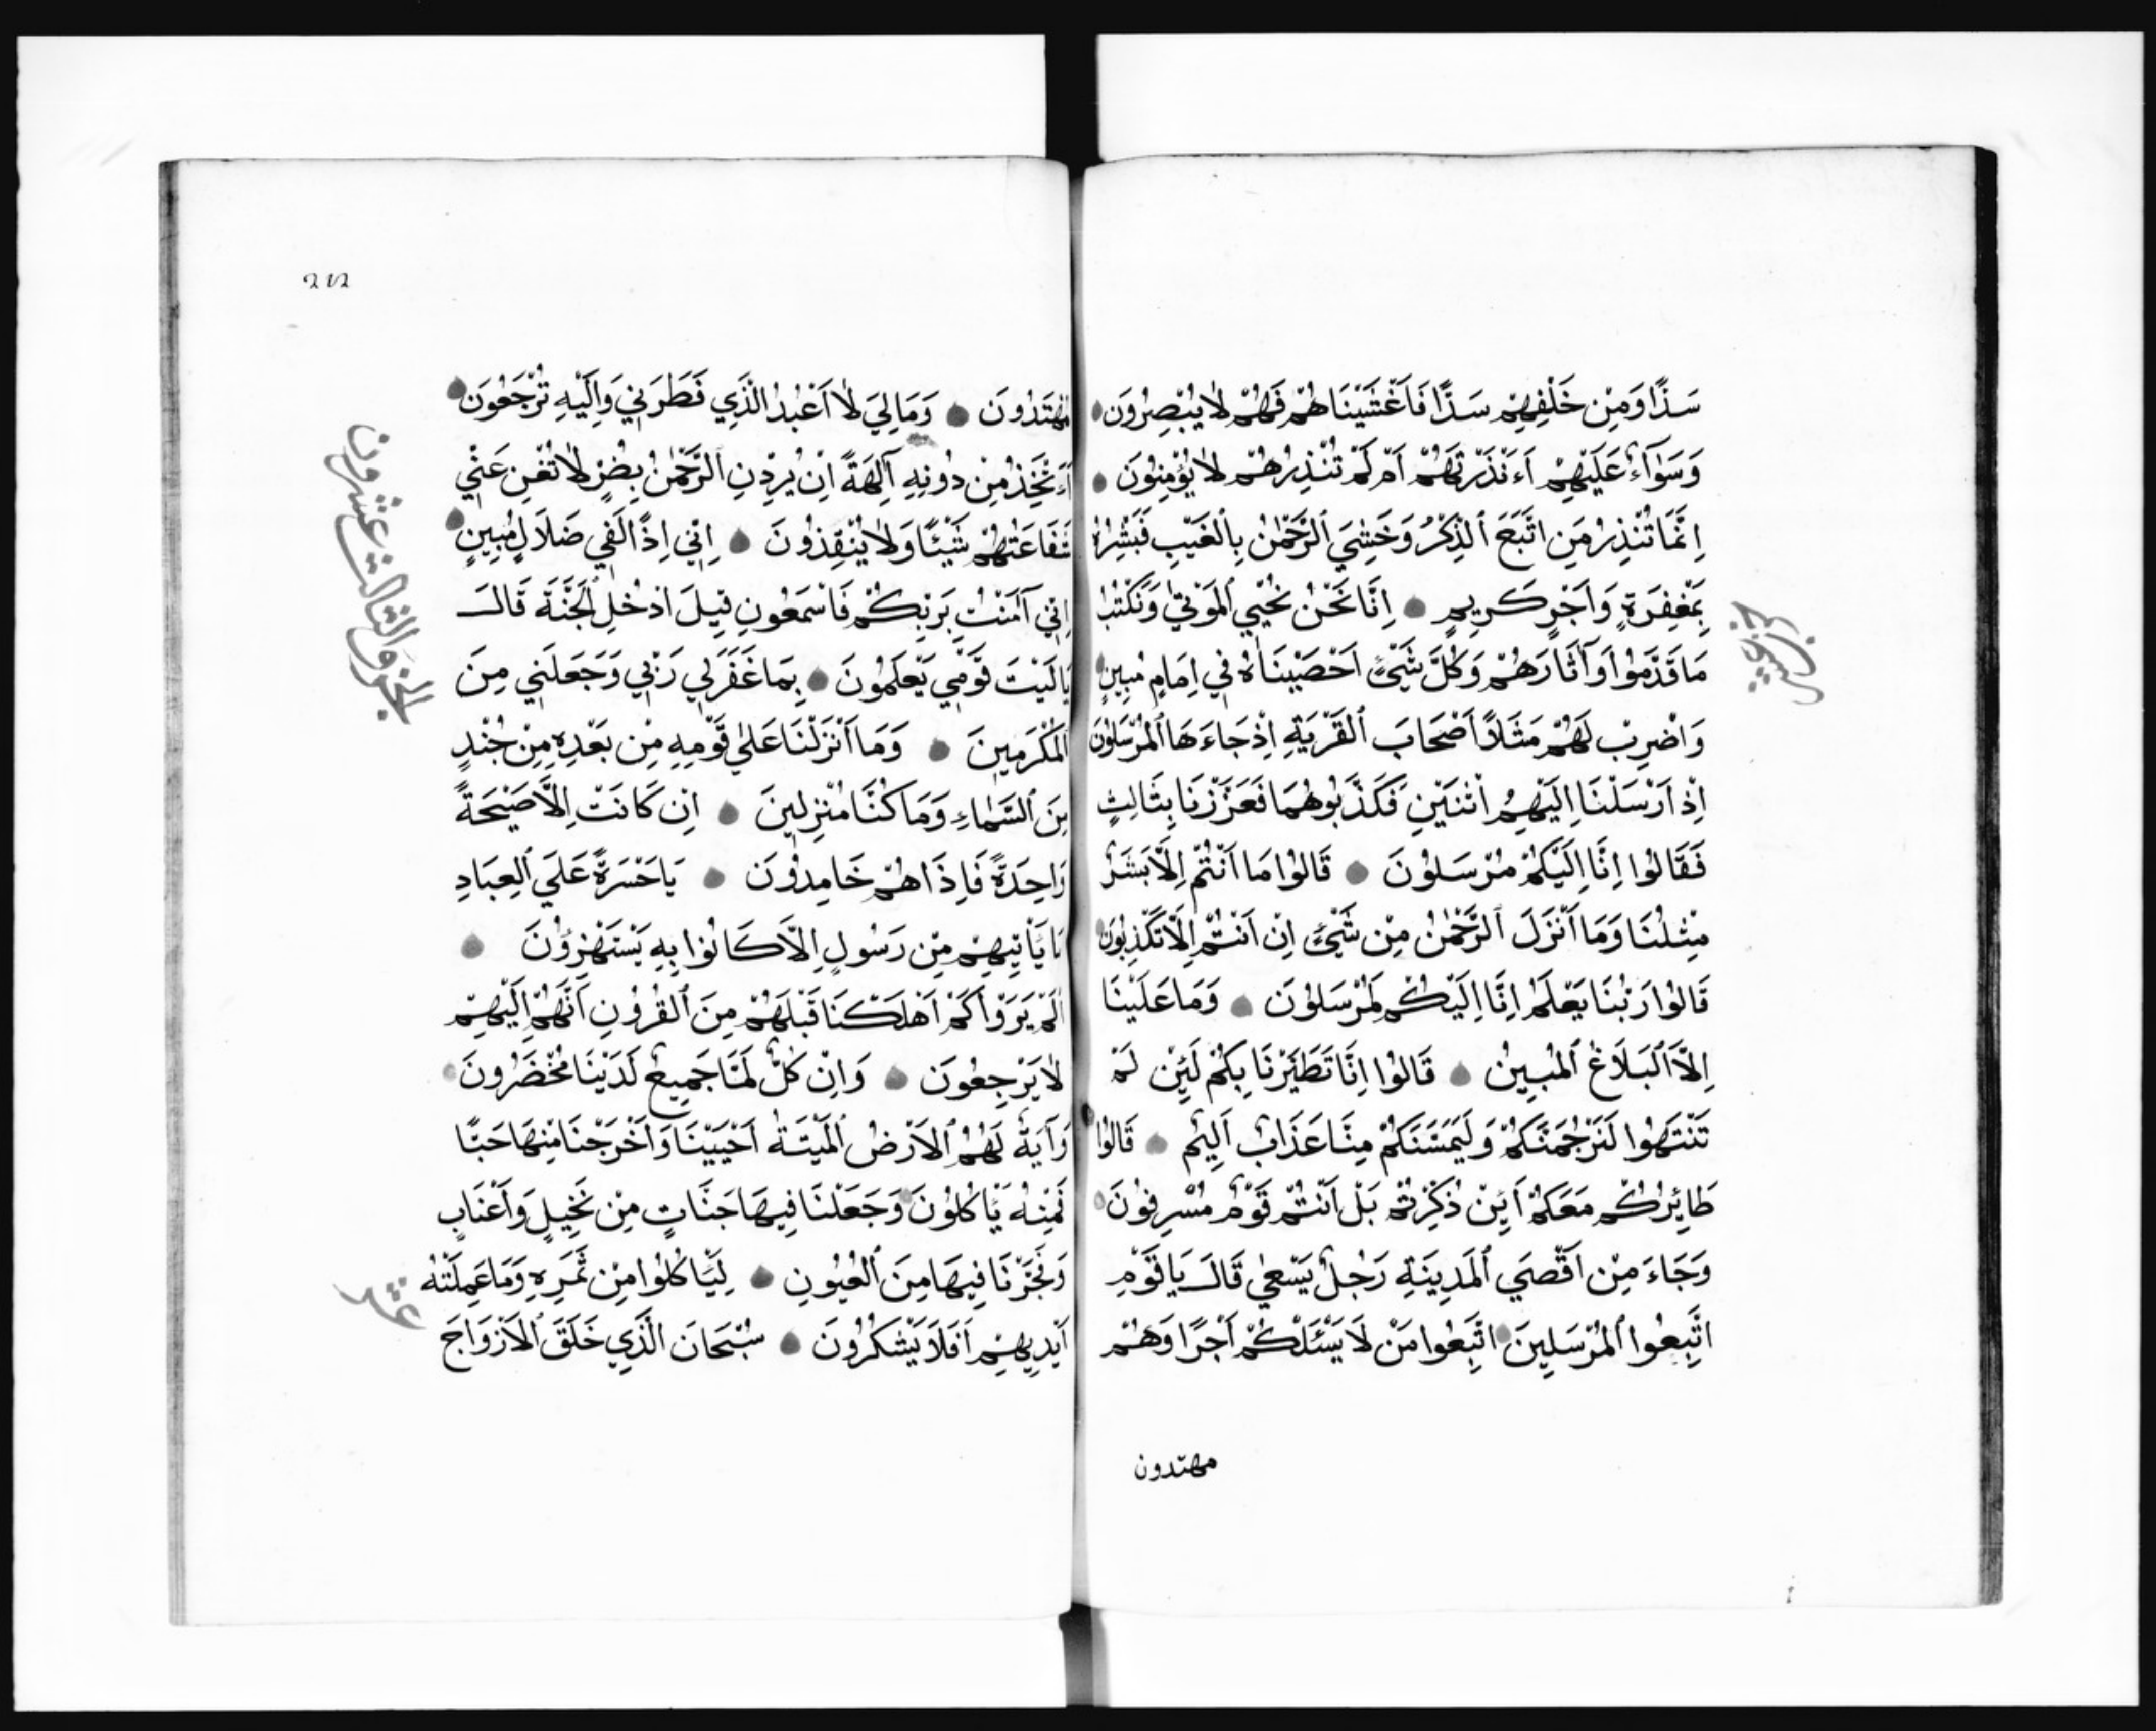 سَدًّا وَمِنْ خَلْفِهِمْ سَدًّا فَاَغْشَيْنَاهُمْ فَهُمْ لَا يُبْصِرُونَ
وَسَوَآءٌ عَلَيْهِمْ ءَاَنْذَرْتَهُمْ اَمْ لَمْ تُنْذِرْهُمْ لَا يُؤْمِنُونَ
اِنَّمَا تُنْذِرُ مَنِ اتَّبَعَ الذِّكْرَ وَخَشِيَ الرَّحْمٰنَ بِالْغَيْبِ فَبَشِّرْهُ
بِمَغْفِرَةٍ وَاَجْرٍ كَرِيمٍ اِنَّا نَحْنُ نُحْيِي الْمَوْتٰي وَنَكْتُبُ
مَا قَدَّمُوا وَآثَارَهُمْ وَكُلَّ شَيْءٍ اَحْصَيْنَاهُ فِي اِمَامٍ مُبِينٍ
وَاضْرِبْ لَهُمْ مَثَلًا اَصْحَابَ الْقَرْيَةِ اِذْ جَاءَهَا الْمُرْسَلُونَ
اِذْ اَرْسَلْنَا اِلَيْهِمُ اثْنَيْنِ فَكَذَّبُوهُمَا فَعَزَّزْنَا بِثَالِثٍ
فَقَالُوا اِنَّا اِلَيْكُمْ مُرْسَلُونَ قَالُوا مَا اَنْتُمْ اِلَّا بَشَرٌ
مِثْلُنَا وَمَا اَنْزَلَ الرَّحْمٰنُ مِنْ شَيْءٍ اِنْ اَنْتُمْ اِلَّا تَكْذِبُونَ
قَالُوا رَبُّنَا يَعْلَمُ اِنَّا اِلَيْكُمْ لَمُرْسَلُونَ وَمَا عَلَيْنَا
اِلَّا الْبَلَاغُ الْمُبِينُ قَالُوا اِنَّا تَطَيَّرْنَا بِكُمْ لَئِنْ لَمْ
تَنْتَهُوا لَنَرْجُمَنَّكُمْ وَلَيَمَسَّنَّكُمْ مِنَّا عَذَابٌ اَلِيمٌ قَالُوا
طَائِرُكُمْ مَعَكُمْ اَئِنْ ذُكِّرْتُمْ بَلْ اَنْتُمْ قَوْمٌ مُسْرِفُونَ
وَجَاءَ مِنْ اَقْصَي الْمَدِينَةِ رَجُلٌ يَسْعٰي قَالَ يَا قَوْمِ
اتَّبِعُوا الْمُرْسَلِينَ اتَّبِعُوا مَنْ لَا يَسْئَلُكُمْ اَجْرًا وَهُمْ
مهتدون
مُهْتَدُونَ وَمَا لِيَ لَا اَعْبُدُ الَّذِي فَطَرَنِي وَاِلَيْهِ تُرْجَعُونَ
ءَاَتَّخِذُ مِنْ دُونِهِ آلِهَةً اِنْ يُرِدْنِ الرَّحْمٰنُ بِضُرٍّ لَا تُغْنِ عَنِّي
شَفَاعَتُهُمْ شَيْئًا وَلَا يُنْقِذُونَ اِنِّي اِذًا لَفِي ضَلَالٍ مُبِينٍ
اِنِّي آمَنْتُ بِرَبِّكُمْ فَاسْمَعُونِ قِيلَ ادْخُلِ الْجَنَّةَ قَالَ
يَا لَيْتَ قَوْمِي يَعْلَمُونَ بِمَا غَفَرَ لِي رَبِّي وَجَعَلَنِي مِنَ
الْمُكْرَمِينَ وَمَا اَنْزَلْنَا عَلٰي قَوْمِهِ مِنْ بَعْدِهِ مِنْ جُنْدٍ
مِنَ السَّمَاءِ وَمَا كُنَّا مُنْزِلِينَ اِنْ كَانَتْ اِلَّا صَيْحَةً
وَاحِدَةً فَاِذَا هُمْ خَامِدُونَ يَا حَسْرَةً عَلَي الْعِبَادِ
مَا يَاْتِيهِمْ مِنْ رَسُولٍ اِلَّا كَانُوا بِهِ يَسْتَهْزِؤُنَ
اَلَمْ يَرَوْا كَمْ اَهْلَكْنَا قَبْلَهُمْ مِنَ الْقُرُونِ اَنَّهُمْ اِلَيْهِمْ
لَا يَرْجِعُونَ وَاِنْ كُلٌّ لَمَّا جَمِيعٌ لَدَيْنَا مُحْضَرُونَ
وَآيَةٌ لَهُمُ الْاَرْضُ الْمَيْتَةُ اَحْيَيْنَا وَاَخْرَجْنَا مِنْهَا حَبًّا
فَمِنْهُ يَاْكُلُونَ وَجَعَلْنَا فِيهَا جَنَّاتٍ مِنْ نَخِيلٍ وَاَعْنَابٍ
وَفَجَّرْنَا فِيهَا مِنَ الْعُيُونِ لِيَاْكُلُوا مِنْ ثَمَرِهِ وَمَا عَمِلَتْهُ
اَيْدِيهِمْ اَفَلَا يَشْكُرُونَ سُبْحَانَ الَّذِي خَلَقَ الْاَزْوَاجَ
الجزو الثالث عشرون
عشر